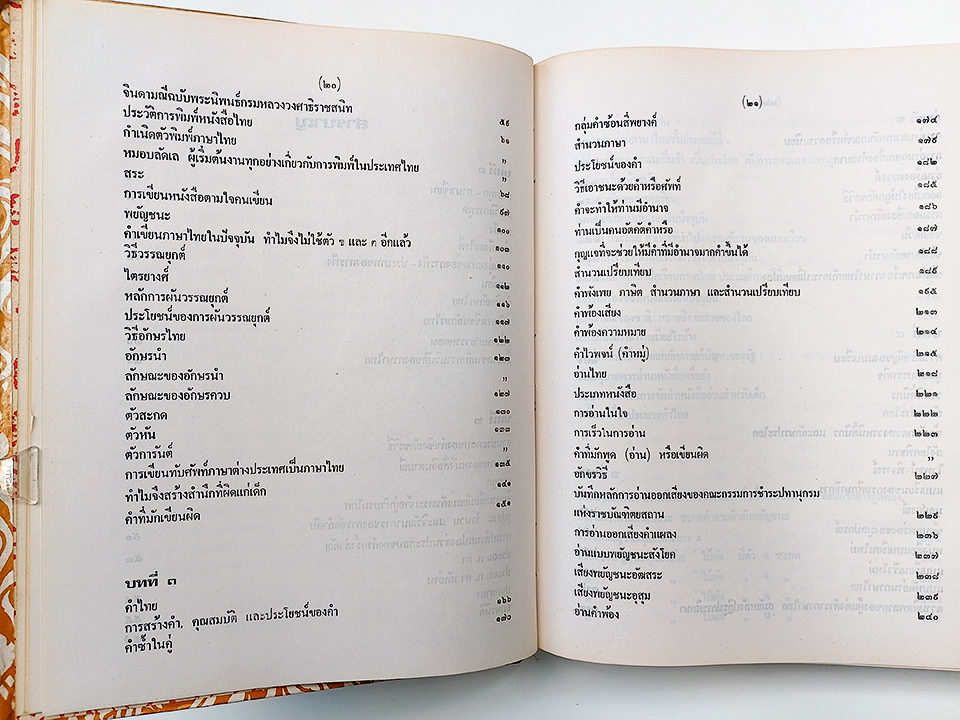 (๒๐)
จินดามณีฉบับพระนิพนธ์กรมหลวงวงศาธิราชสนิท
ประวัติการพิมพ์หนังสือไทย ๕๙
กำเนิดตัวพิมพ์ภาษาไทย ๖๑
หมอบลัดเล ผู้เริ่มต้นงานทุกอย่างเกี่ยวกับการพิมพ์ในประเทศไทย ,,
สระ ๖๘
การเขียนหนังสือตามใจคนเขียน ๙๗
พยัญชนะ ๑๐๐
คำเขียนภาษาไทยในปัจจุบัน ทำไมจึงไม่ใช้ตัว ฃ และ ฅ อีกแล้ว ๑๐๓
วิธีวรรณยุกต์ ๑๑๐
ไตรยางศ์ ๑๑๒
หลักการผันวรรณยุกต์ ๑๑๖
ประโยชน์ของการผันวรรณยุกต์ ๑๑๗
วิธีอักษรไทย ๑๒๒
อักษรนำ ๑๒๓
ลักษณะของอักษรนำ ,,
ลักษณะของอักษรควบ ๑๒๗
ตัวสะกด ๑๓๐
ตัวหัน ๑๓๓
ตัวการันต์ ,,
การเขียนทับศัพท์ภาษาต่างประเทศเป็นภาษาไทย ๑๓๕
ทำไมจึงสร้างสำนึกที่ผิดแก่เด็ก ๑๔๑
คำที่มักเขียนผิด ๑๕๑
บทที่ ๓
คำไทย
การสร้างคำ, คุณสมบัติ และประโยชน์ของคำ ๑๖๖
คำซ้ำในคู่ ๑๗๐
(๒๑)
กลุ่มคำซ้อนสี่พยางค์ ๑๗๔
สำนวนภาษา ๑๗๙
ประโยชน์ของคำ ๑๘๒
วิธีเอาชนะด้วยคำหรือศัพท์ ๑๘๕
คำจะทำให้ท่านมีอำนาจ ๑๘๖
ท่านเป็นคนอัตคัดคำหรือ ๑๘๗
กุญแจที่จะช่วยให้มีคำที่มีอำนาจมากคำขึ้นได้ ๑๘๘
สำนวนเปรียบเทียบ ๑๘๙
คำพังเพย ภาษิต สำนวนภาษา และสำนวนเปรียบเทียบ ๑๙๕
คำพ้องเสียง ๒๑๓
คำพ้องความหมาย ๒๑๔
คำไวพจน์ (คำหมู่) ๒๑๕
อ่านไทย ๒๑๘
ประเภทหนังสือ ๒๒๑
การอ่านในใจ ๒๒๒
การเร็วในการอ่าน ๒๒๓
คำที่มักพูด (อ่าน) หรือเขียนผิด ,,
อักขรวิธี ๒๒๗
บันทึกหลักการอ่านออกเสียงของคณะกรรมการชำระปทานุกรม
แห่งราชบัณฑิตยสถาน ๒๒๙
การอ่านออกเสียงคำแผลง ๒๓๖
อ่านแบบพยัญชนะสังโยค ๒๓๗
เสียงพยัญชนะอัฒสระ ๒๓๘
เสียงพยัญชนะอุสุม ๒๓๙
อ่านคำพ้อง ๒๔๐